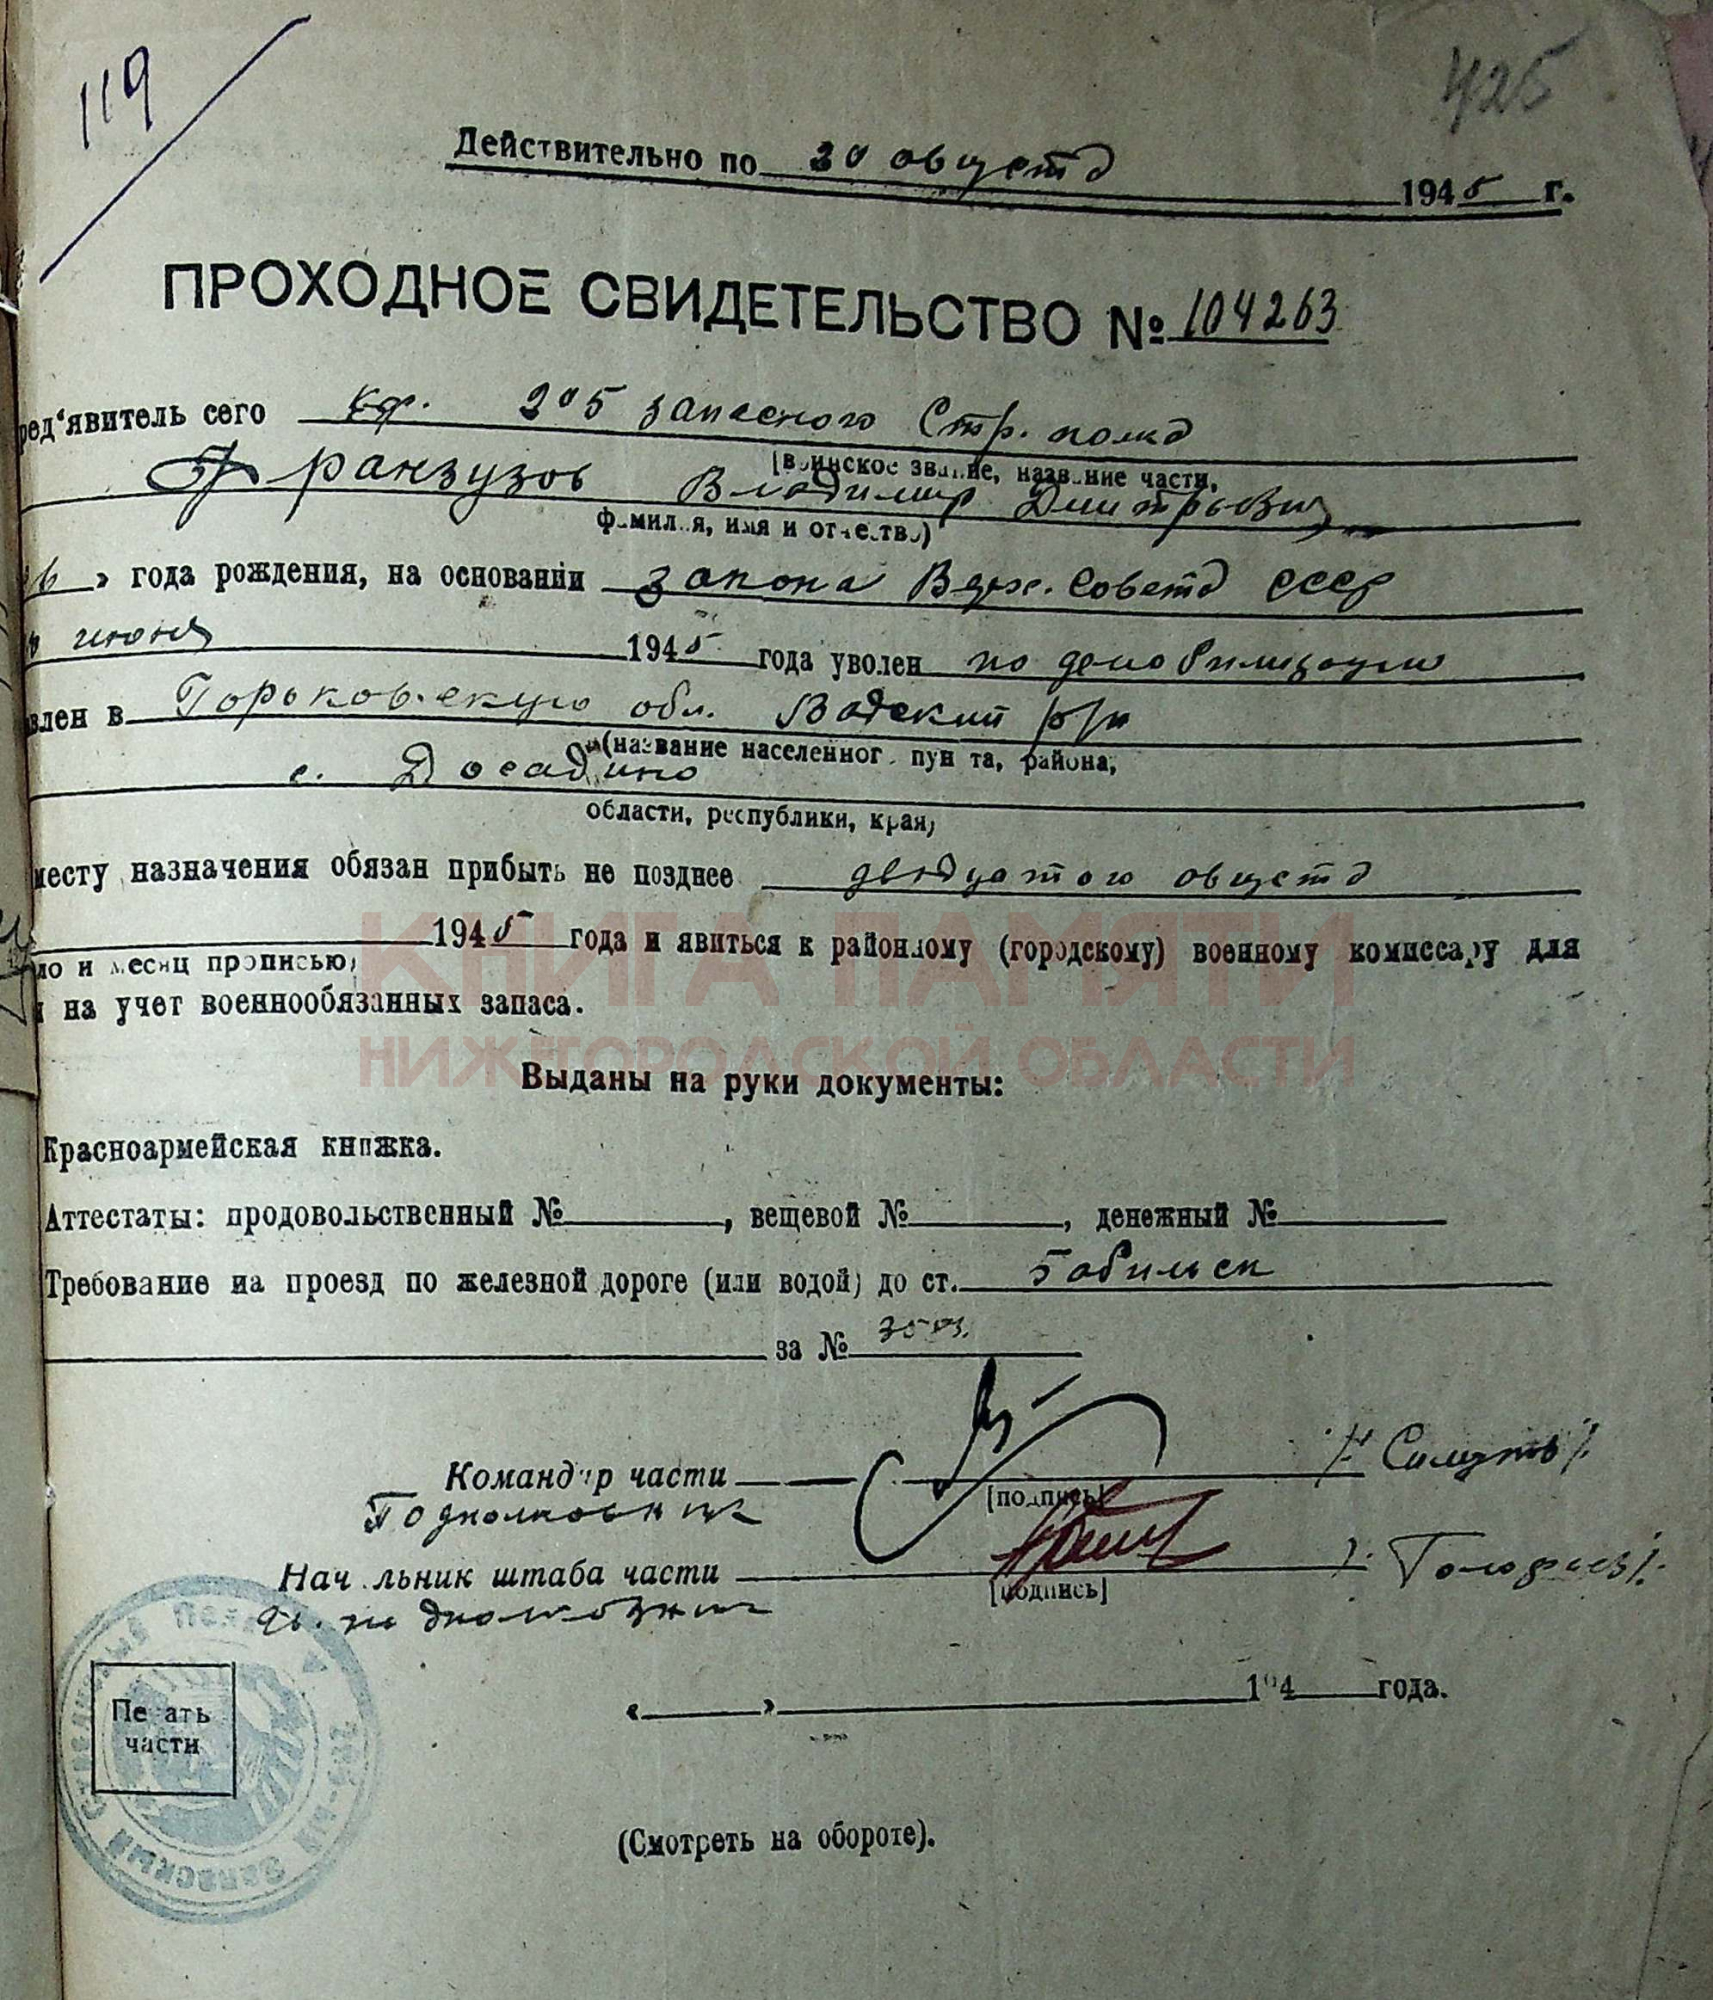 119
425
Действительно по 20 августа 1945 г.
ПРОХОДНОЕ СВИДЕТЕЛЬСТВО № 104263
ред'явитель сего кр. 205 запасного Стр. полка
(воинское звание, название части,
Французов Владимир Дмитрьевич
фамилия, имя и отчество)
» года рождения, на основании закона Верх. Совета СССР
июня 1945 года уволен по демобилизации
влен в Горьковскую обл. Вадский р/н
(название населенног пункта, района,
с. Досадино
области, республики, края)
месту назначения обязан прибыть не позднее двадцатого августа
1945 года и явиться к районному (городскому) военному комиссару для
ло и месяц прописью)
и на учет военнообязанных запаса.
КНИГА ПАМЯТИ
НИЖЕГОРОДСКОЙ ОБЛАСТИ
Выданы на руки документы:
Красноармейская книжка.
Аттестаты: продовольственный № , вещевой № , денежный №
Требование на проезд по железной дороге (или водой) до ст.
за №
Командир части
[подпись]
Подполковник
Начальник штаба части
[подпись]
подполковник
« » 194 года.
Печать
части
(Смотреть на обороте).